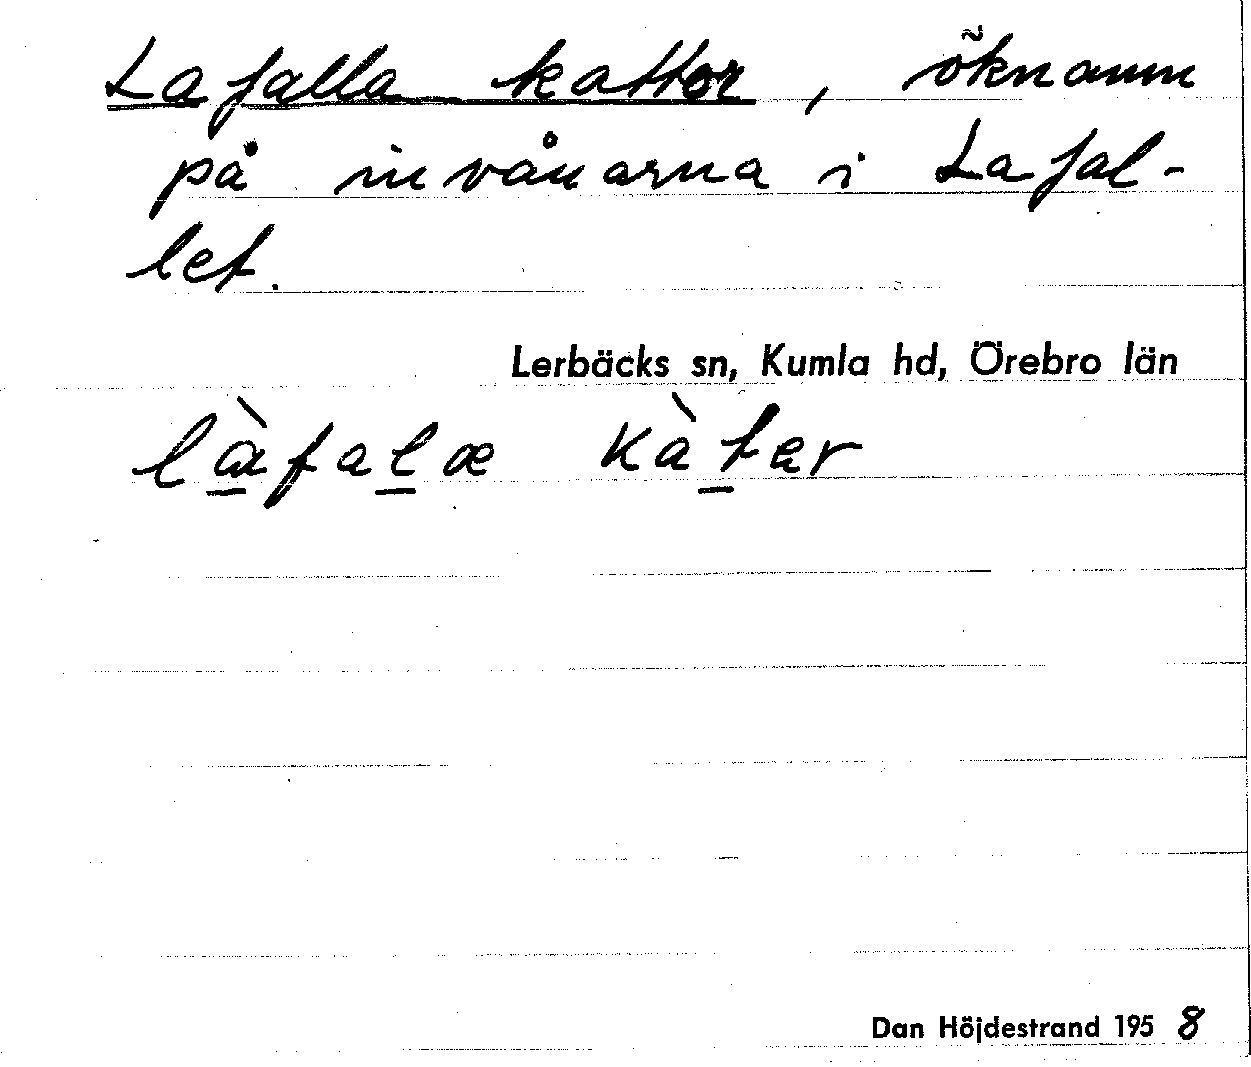 Lafalla kattor, öknamn
på invånarna i Lafal-
let.
Lerbäcks sn, Kumla hd, Örebro län
làfalæ kàter
Dan Höjdestrand 1958